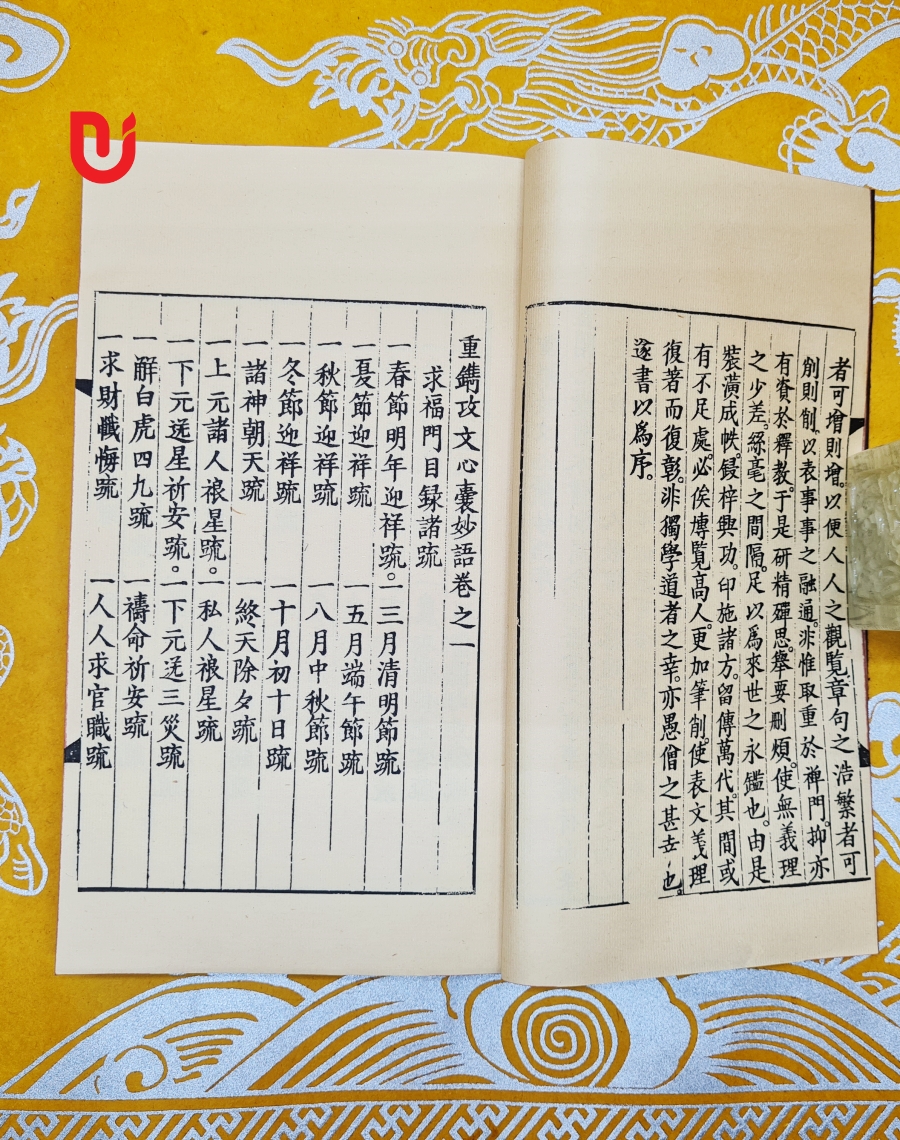 者可增則增。以便人人之觀覧章句之浩繁者可
削則削。以表事事之融通。非惟取重於禅門。抑亦
有資於釋教。于是研精殫思。舉要刪煩。使無義理
之少差。絲毫之間隔。足以爲來世之永鑑也。由是
裝潢成帙。録梓興功。印施諸方。留傳萬代。其間或
有不足處。必俟博覧高人。更加筆削。使表文義理
復著而復彰。非獨學道者之幸。亦愚僧之甚幸也。
遂書以爲序。
重鐫攻文心囊妙語卷之一
求福門目録諸疏
一春節明年迎祥疏。一三月清明節疏
一夏節迎祥疏 一五月端午節疏
一秋節迎祥疏 一八月中秋節疏
一冬節迎祥疏 一十月初十日疏
一諸神朝天疏 一終天除夕疏
一上元諸人禳星疏。一私人禳星疏
一下元送星祈安疏。一下元送三災疏
一解白虎四九疏 一禱命祈安疏
一求財懺悔疏 一人人求官職疏